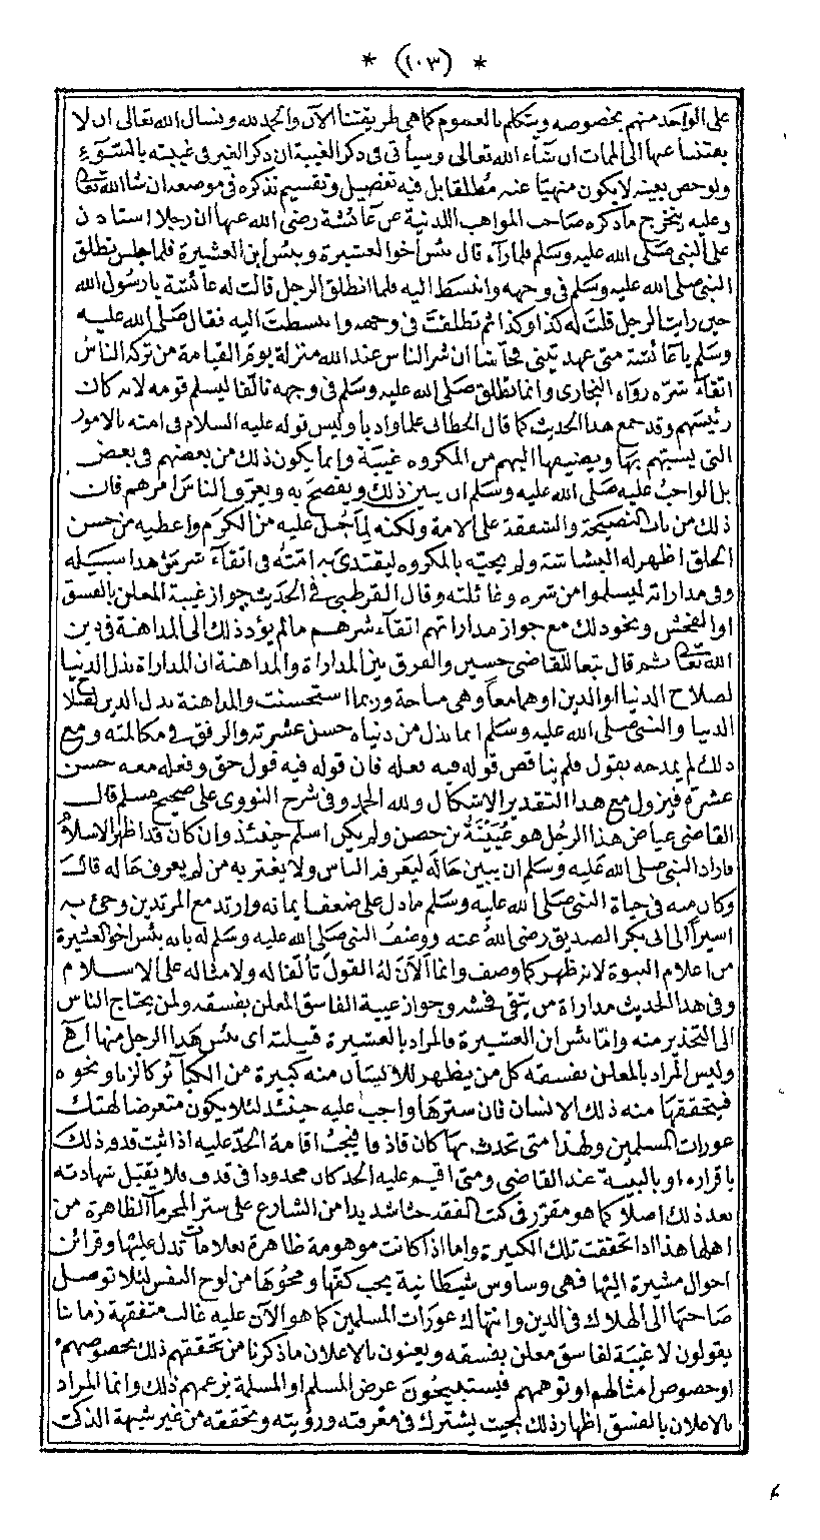 * (١٠٣) *
على الواحد منهم بخصوصه ويتكلم بالعموم كما هي طريقتنا الآن والحمد لله ونسال الله تعالى ان لا
يفتننا عنها الى الممات ان شآء الله تعالى وسيأتى فى ذكر الغيبة ان ذكر الغير فى غيبته بالسوء
ولو خص بعينه لا يكون منهيا عنه مطلقا بل فيه تفصيل وتقسيم نذكره فى موضعه ان شا الله تعا
وعليه يتخرج ما ذكره صاحب المواهب اللدنية عن عائشة رضى الله عنها ان رجلا استاذن
على النبى صلى الله عليه وسلم فلما رآه قال بئس أخو العشيرة وبئس ابن العشيرة فلما جلس تطلق
النبى صلى الله عليه وسلم فى وجهه وانبسط اليه فلما انطلق الرجل قالت له عائشة يا رسول الله
حين رايت الرجل قلت له كذا وكذا ثم تطلقت فى وجهه وانبسطت اليه فقال صلى الله عليه
وسلم يا عائشة متى عهدتينى فحاشا ان شر الناس عند الله منزلة يوم القيامة من تركه الناس
اتقآء شره رواه البخارى وانما تطلق صلى الله عليه وسلم فى وجهه تألفا ليسلم قومه لانه كان
رئيسهم وقد جمع هذا الحديث كما قال الخطابى علما وادبا وليس قوله عليه السلام فى امته بالامور
التى يسميهم بها ويضيفها اليهم من المكروه غيبة وانما يكون ذلك من بعضهم فى بعض
بل الواجب عليه صلى الله عليه وسلم ان يبين ذلك ويفصح به ويعرف الناس امرهم فان
ذلك من باب النصيحة والشفقة على الامة ولكنه لما جبل عليه من الكرم واعطيه من حسن
الخلق اظهر له البشاشة ولم يجبه بالمكروه ليقتدى به امته فى اتقآء شر من هذا سبيله
وفى مداراته ليسلموا من شره وغائلته وقال القرطبى فى الحديث جواز غيبة المعلن بالفسق
او الفحش ونحو ذلك مع جواز مداراتهم اتقآء شرهم ما لم يؤد ذلك الى المداهنة فى دين
الله تعا ثم قال تبعا للقاضى حسين والفرق بين المداراة والمداهنة ان المداراة بذل الدنيا
لصلاح الدنيا او الدين او هما معا وهى مباحة وربما استحسنت والمداهنة بذل الدين لصلاح
الدنيا والنبى صلى الله عليه وسلم انما بذل من دنياه حسن عشرته والرفق فى مكالمته ومع
ذلك لم يمدحه بقول فلم يناقض قوله فيه فعله فان قوله فيه قول حق وفعله معه حسن
عشرة فيزول مع هذا التقدير الاشكال ولله الحمد وفى شرح النووى على صحيح مسلم قال
القاضى عياض هذا الرجل هو عيينة بن حصن ولم يكن اسلم حينئذ وان كان قد اظهر الاسلام
فاراد النبى صلى الله عليه وسلم ان يبين حاله ليعرفه الناس ولا يغتر به من لم يعرف حاله قال
وكان منه فى حياة النبى صلى الله عليه وسلم ما دل على ضعف ايمانه وارتد مع المرتدين وجئ به
اسيرا الى ابى بكر الصديق رضى الله عنه ووصف النبى صلى الله عليه وسلم له بانه بئس اخو العشيرة
من اعلام النبوة لانه ظهر كما وصف وانما ألان له القول تألفا له ولامثاله على الاسلام
وفى هذا الحديث مداراة من يتقى فحشه وجواز غيبة الفاسق المعلن بفسقه ولمن يحتاج الناس
الى التحذير منه واما بئس ابن العشيرة فالمراد بالعشيرة قبيلته اى بئس هذا الرجل منها اهـ
وليس المراد بالمعلن بفسقه كل من يظهر للانسان منه كبيرة من الكبآئر كالزنا ونحوه
فيتحققها منه ذلك الانسان فان سترها واجب عليه حينئذ لئلا يكون متعرضا لهتك
عورات المسلمين ولهذا متى تحدث بها كان قاذفا فيجب اقامة الحد عليه اذا ثبت قدف ذلك
باقراره او بالبينة عند القاضى ومتى اقيم عليه الحد كان محدودا فى قذف فلا يقبل شهادته
بعد ذلك اصلا كما هو مقرر فى كتب الفقه حثا شديدا من الشارع على ستر المحرمات الظاهرة من
اهلها هذا اذا تحققت تلك الكبيرة واما اذا كانت موهومة ظاهرة بعلامات تدل عليها وقرائن
احوال مشيرة اليها فهى وساوس شيطانية يجب كفها ومحوها من لوح النفس لئلا توصل
صاحبها الى الهلاك فى الدين وانتهاك عورات المسلمين كما هو الآن عليه غالب متفقهة زماننا
يقولون لا غيبة لفاسق معلن بفسقه ويعنون بالاعلان ما ذكرنا من تحققهم ذلك بخصوصهم
او خصوص امثالهم او توهمهم فيستبيحون عرض المسلم او المسلمة بزعمهم ذلك وانما المراد
بالاعلان بالفسق اظهار ذلك بحيث يشترك فى معرفته ورؤيته وتحققه من غير شبهة الذكى